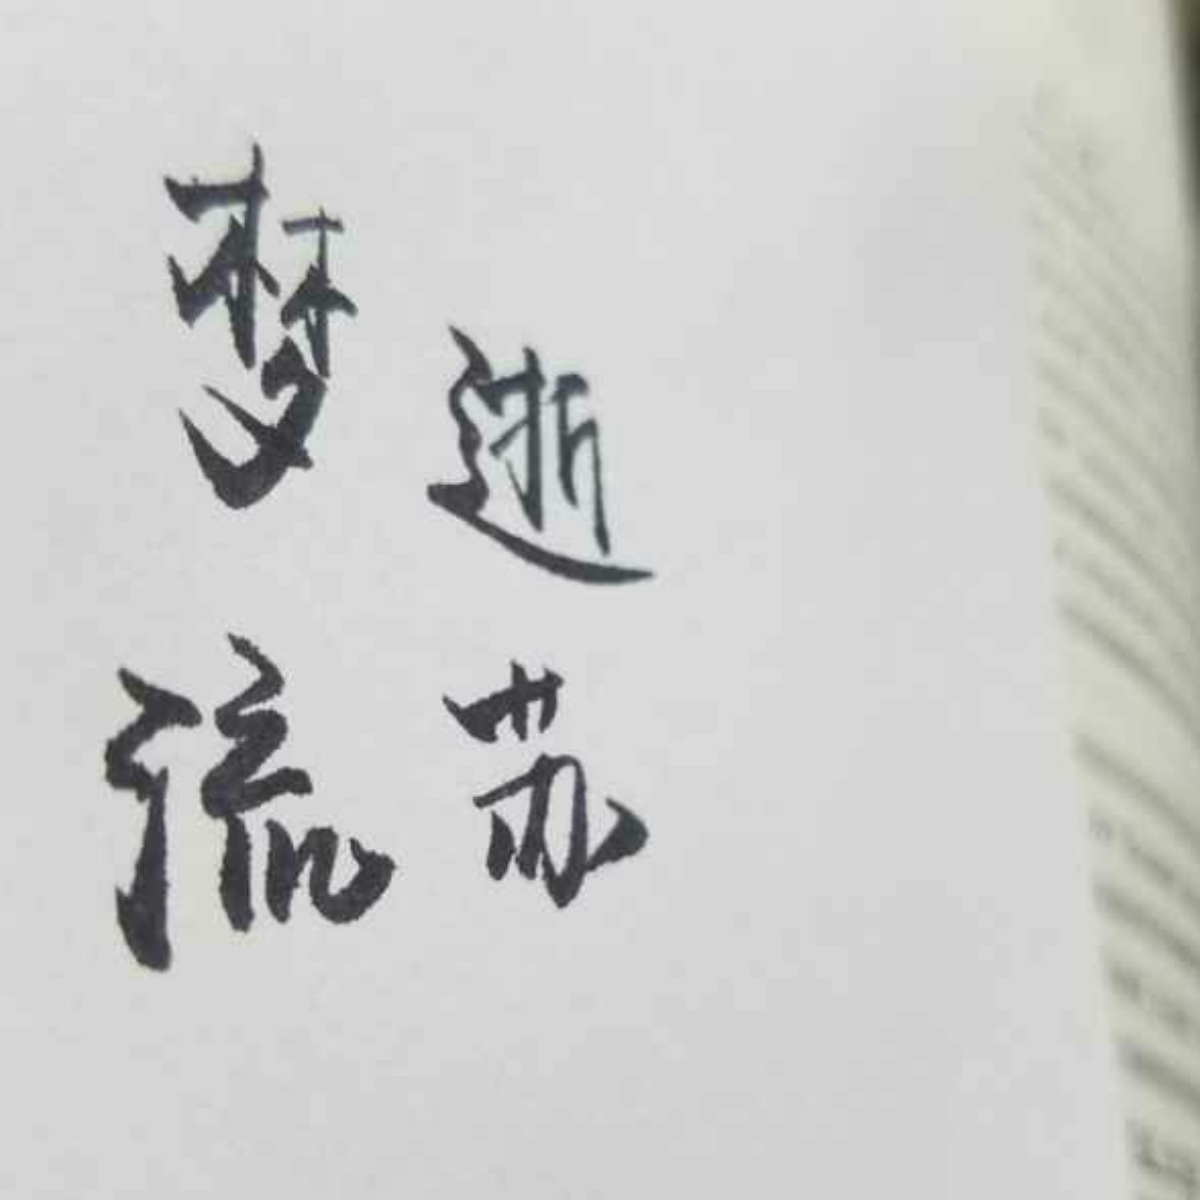 梦逝
流苏